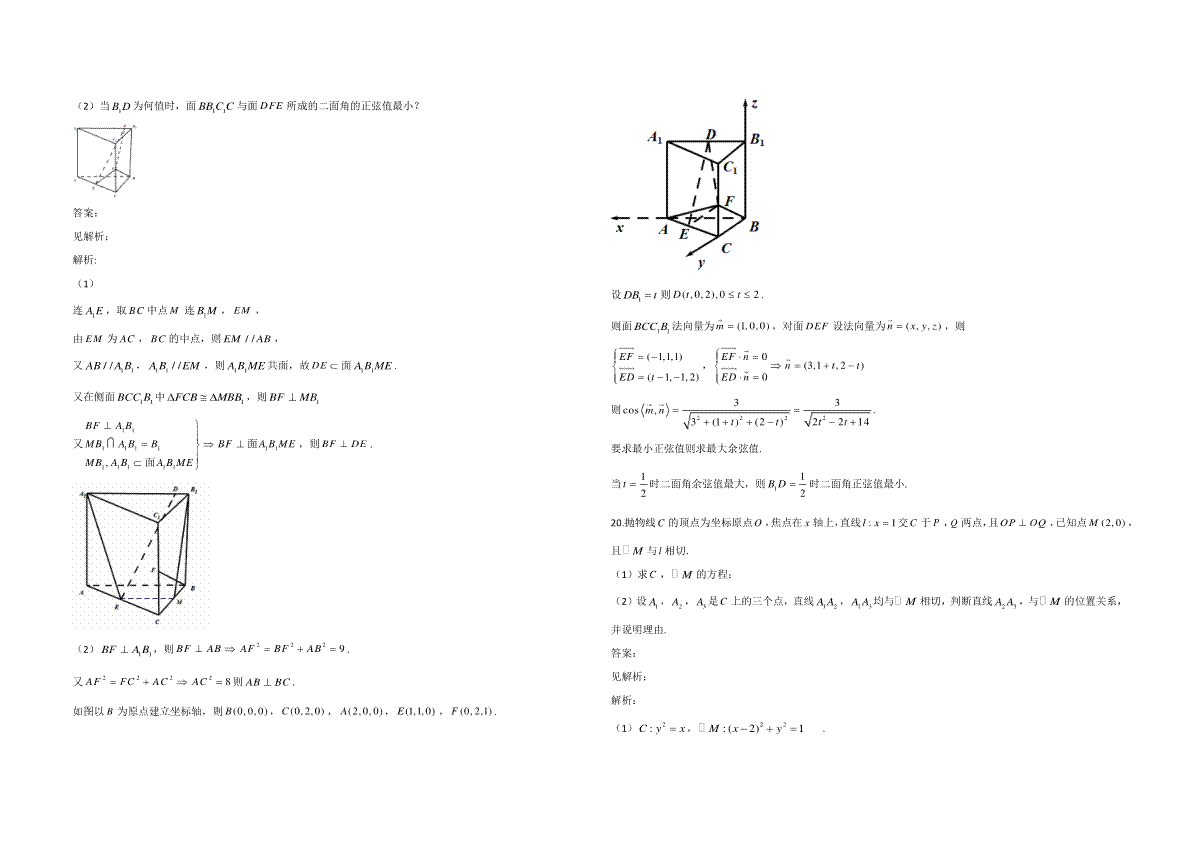 （2）当B₁D为何值时，面BB₁C₁C与面DFE所成的二面角的正弦值最小？
答案：
见解析；
解析:
（1）
连A₁E，取BC中点M 连B₁M，EM，
由EM为AC，BC的中点，则EM//AB，
又AB//A₁B₁，A₁B₁//EM，则A₁B₁ME共面，故DE⊂面A₁B₁ME.
又在侧面BCC₁B₁中ΔFCB≅ΔMBB₁，则BF⊥MB₁
又{BF⊥A₁B₁
MB₁∩A₁B₁=B₁
MB₁,A₁B₁⊂面A₁B₁ME}⇒BF⊥面A₁B₁ME，则BF⊥DE.
A₁ D B₁
C₁
F
A B
E M
C
（2）BF⊥A₁B₁，则BF⊥AB⇒AF²=BF²+AB²=9.
又AF²=FC²+AC²⇒AC²=8则AB⊥BC.
如图以B为原点建立坐标轴，则B(0,0,0)，C(0,2,0)，A(2,0,0)，E(1,1,0)，F(0,2,1).
z
A₁ D B₁
C₁
F
x A E B
C
y
设DB₁=t则D(t,0,2),0≤t≤2.
则面BCC₁B₁法向量为m⃗=(1,0,0)，对面DEF设法向量为n⃗=(x,y,z)，则
{EF=(−1,1,1)
ED=(t−1,−1,2)，{EF·n⃗=0
ED·n⃗=0⇒n⃗=(3,1+t,2−t)
则cos⟨m⃗,n⃗⟩=3/√(3²+(1+t)²+(2−t)²)=3/√(2t²−2t+14).
要求最小正弦值则求最大余弦值.
当t=1/2时二面角余弦值最大，则B₁D=1/2时二面角正弦值最小.
20.抛物线C的顶点为坐标原点O，焦点在x轴上，直线l:x=1交C于P，Q两点，且OP⊥OQ，已知点M(2,0)，
且 M与l相切.
（1）求C， M的方程；
（2）设A₁，A₂，A₃是C上的三个点，直线A₁A₂，A₁A₃均与 M相切，判断直线A₂A₃，与 M的位置关系，
并说明理由.
答案：
见解析；
解析：
（1）C:y²=x， M:(x−2)²+y²=1 .